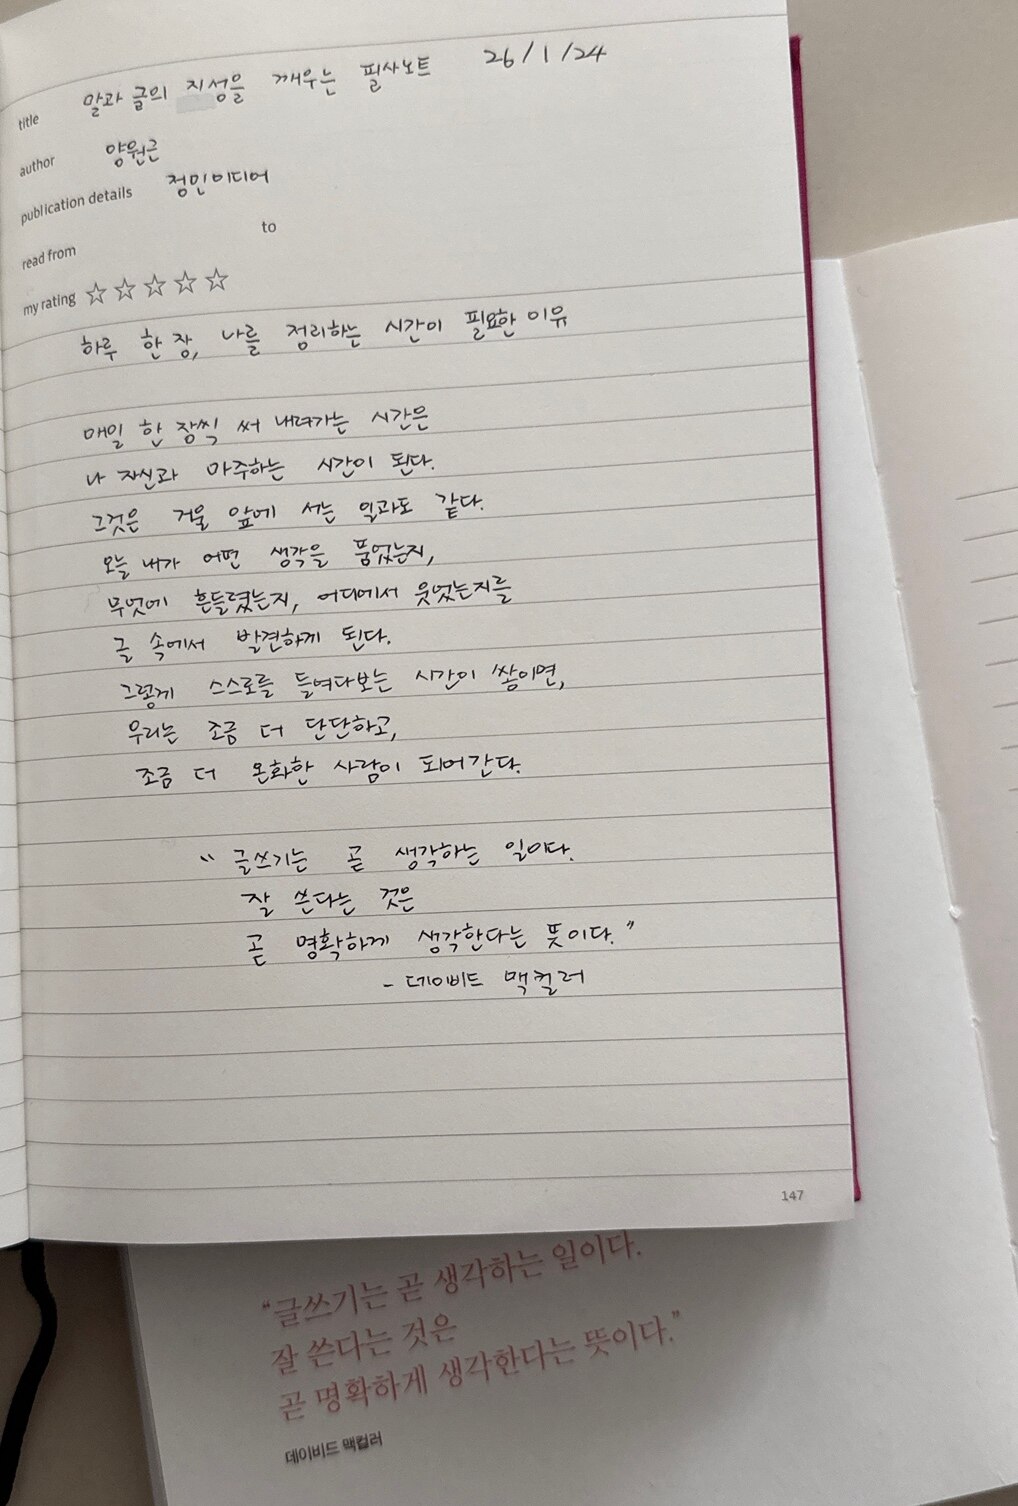 title 말과 글의 지성을 깨우는 필사노트 26/1/24
author 양원근
publication details 정민미디어
read from to
my rating ☆☆☆☆☆
하루 한 장, 나를 정리하는 시간이 필요한 이유
매일 한 장씩 써 내려가는 시간은
나 자신과 마주하는 시간이 된다.
그것은 거울 앞에 서는 일과도 같다.
오늘 내가 어떤 생각을 품었는지,
무엇에 흔들렸는지, 어디에서 웃었는지를
글 속에서 발견하게 된다.
그렇게 스스로를 들여다보는 시간이 쌓이면,
우리는 조금 더 단단하고,
조금 더 온화한 사람이 되어간다.
"글쓰기는 곧 생각하는 일이다.
잘 쓴다는 것은
곧 명확하게 생각한다는 뜻이다."
- 데이비드 맥컬러
147
"글쓰기는 곧 생각하는 일이다.
잘 쓴다는 것은
곧 명확하게 생각한다는 뜻이다."
데이비드 맥컬러